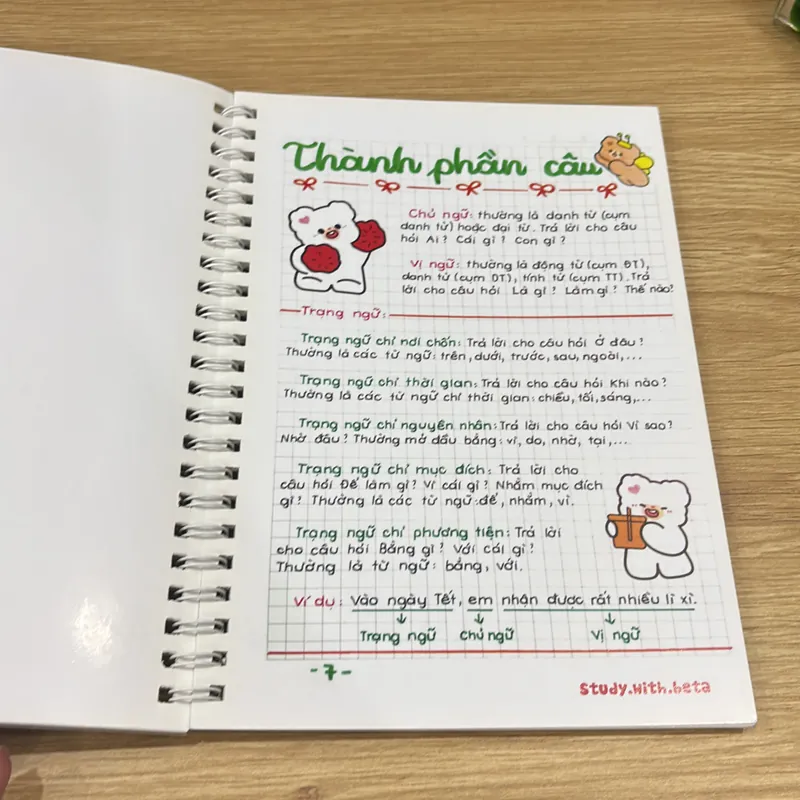 Thành phần câu
Chủ ngữ: thường là danh từ (cụm
danh từ) hoặc đại từ. Trả lời cho câu
hỏi Ai? Cái gì? Con gì?
Vị ngữ: thường là động từ (cụm ĐT),
danh từ (cụm DT), tính từ (cụm TT). Trả
lời cho câu hỏi Là gì? Làm gì? Thế nào?
Trạng ngữ:
Trạng ngữ chỉ nơi chốn: Trả lời cho câu hỏi Ở đâu?
Thường là các từ ngữ: trên, dưới, trước, sau, ngoài,...
Trạng ngữ chỉ thời gian: Trả lời cho câu hỏi Khi nào?
Thường là các từ ngữ chỉ thời gian: chiều, tối, sáng,...
Trạng ngữ chỉ nguyên nhân: Trả lời cho câu hỏi Vì sao?
Nhờ đâu? Thường mở đầu bằng: vì, do, nhờ, tại,...
Trạng ngữ chỉ mục đích: Trả lời cho
câu hỏi Để làm gì? Vì cái gì? Nhằm mục đích
gì? Thường là các từ ngữ: để, nhằm, vì.
Trạng ngữ chỉ phương tiện: Trả lời
cho câu hỏi Bằng gì? Với cái gì?
Thường là từ ngữ: bằng, với.
Ví dụ: Vào ngày Tết, em nhận được rất nhiều lì xì.
Trạng ngữ chủ ngữ Vị ngữ
-7-
Study.with.beta